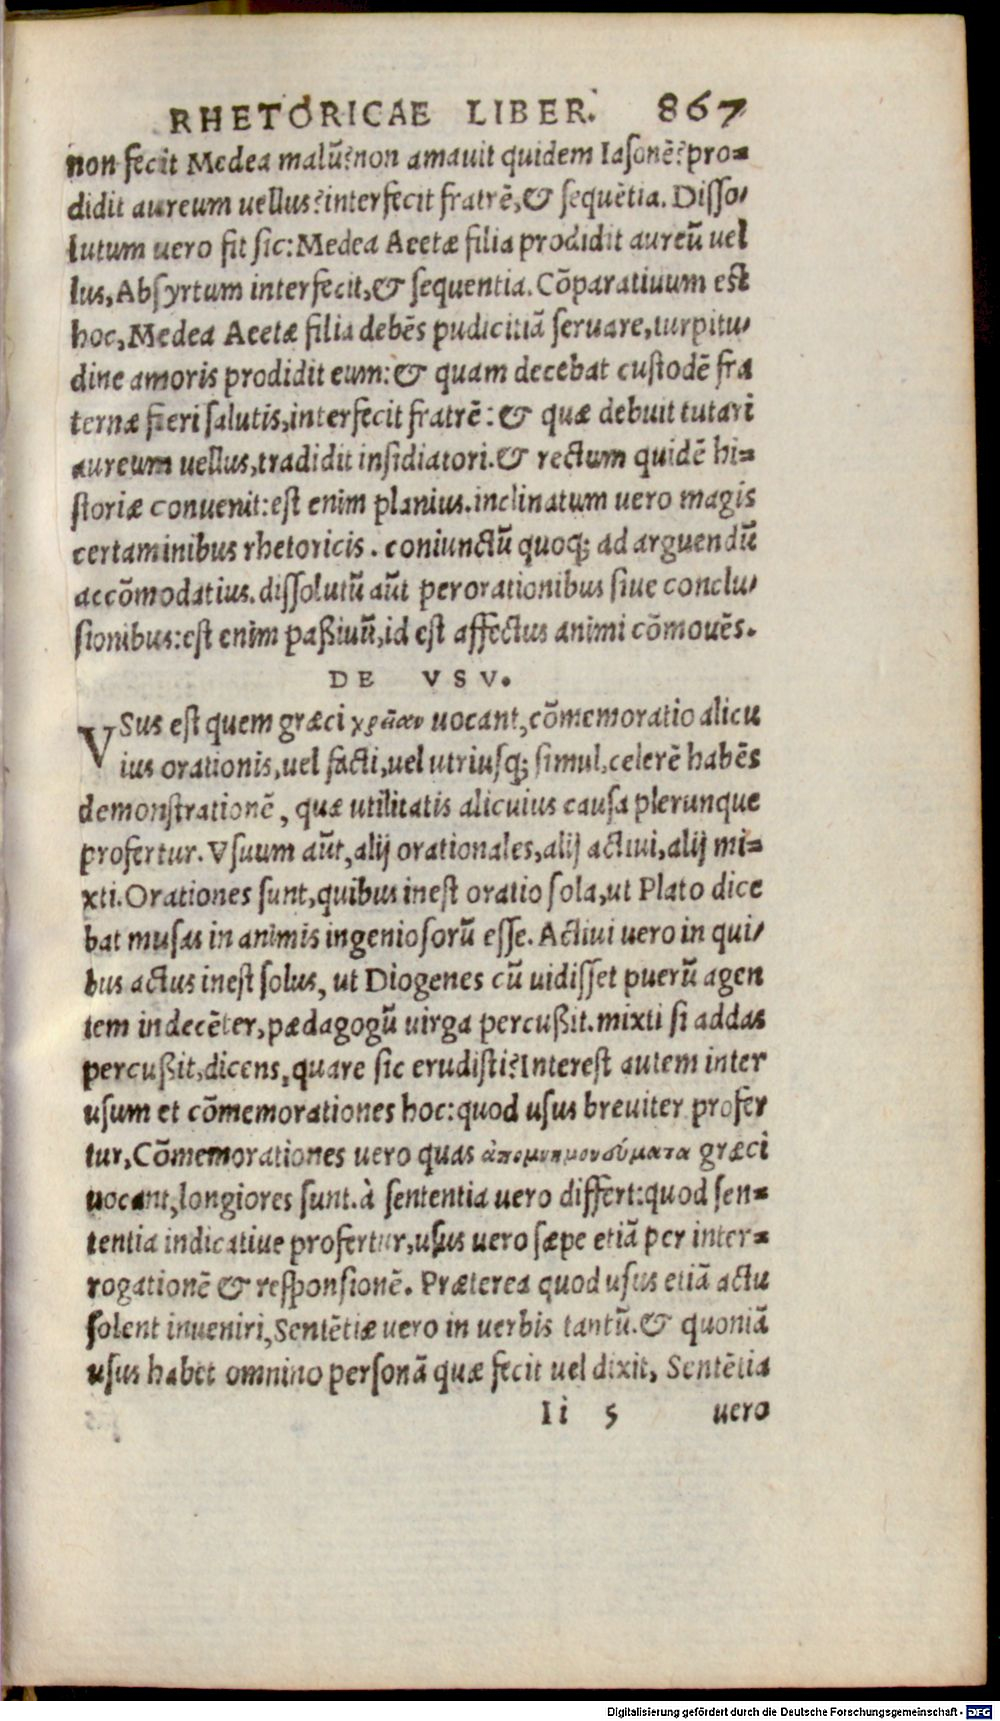 RHETORICAE LIBER. 867
non fecit Medea malũ? non amauit quidem Iasonẽ? pro=
didit aureum uellus? interfecit fratrẽ, & sequẽtia. Disso/
lutum uero fit sic: Medea Aeetæ filia prodidit aureũ uel
lus, Absyrtum interfecit, & sequentia. Cõparatiuum est
hoc, Medea Aeetæ filia debẽs pudicitiã seruare, turpitu/
dine amoris prodidit eum: & quam decebat custodẽ fra
ternæ fieri salutis, interfecit fratrẽ: & quæ debuit tutari
aureum uellus, tradidit insidiatori. & rectum quidẽ hi=
storiæ conuenit: est enim planius. inclinatum uero magis
certaminibus rhetoricis. coniunctũ quoq; ad arguendũ
accõmodatius. dissolutũ aũt perorationibus siue conclu/
sionibus: est enim paßiuũ, id est affectus animi cõmouẽs.
DE VSV.
VSus est quem græci χρείαν uocant, cõmemoratio alicu
ius orationis, uel facti, uel utriusq; simul, celerẽ habẽs
demonstrationẽ, quæ utilitatis alicuius causa plerunque
profertur. Vsuum aũt, alij orationales, alij actiui, alij mi=
xti. Orationes sunt, quibus inest oratio sola, ut Plato dice
bat musas in animis ingeniosorũ esse. Actiui uero in qui/
bus actus inest solus, ut Diogenes cũ uidisset puerũ agen
tem indecẽter, pædagogũ uirga percußit. mixti si addas
percußit, dicens, quare sic erudisti? Interest autem inter
usum et cõmemorationes hoc: quod usus breuiter profer
tur, Cõmemorationes uero quas ἀπομνημονεύματα græci
uocant, longiores sunt. à sententia uero differt: quod sen=
tentia indicatiue profertur, usus uero sæpe etiã per inter=
rogationẽ & responsionẽ. Præterea quod usus etiã actu
solent inueniri, Sentẽtiæ uero in uerbis tantũ. & quoniã
usus habet omnino personã quæ fecit uel dixit, Sentẽtia
Ii 5 uero
Digitalisierung gefördert durch die Deutsche Forschungsgemeinschaft - DFG